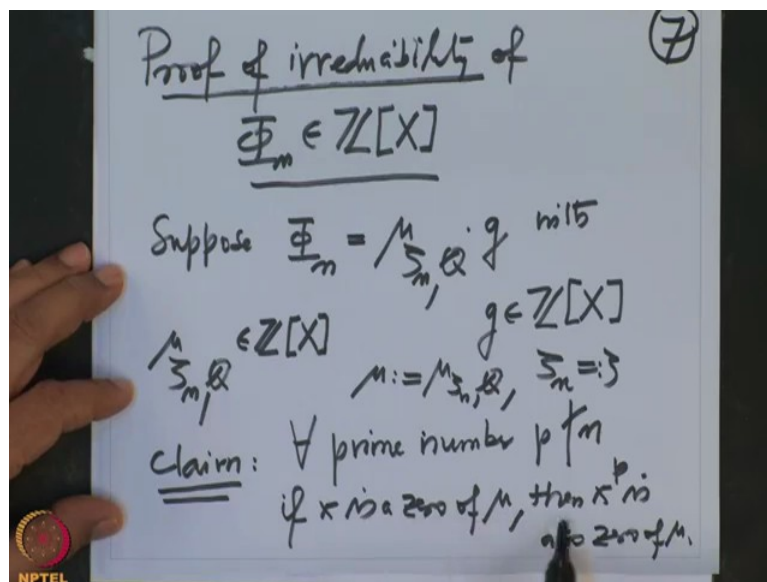 Proof of irreducibility of
⑦
Φₙ ∈ ℤ[X]
Suppose Φₙ = μ_{ζₙ,ℚ} · g with
μ_{ζₙ,ℚ} ∈ ℤ[X] g ∈ ℤ[X]
μ := μ_{ζₙ,ℚ}, ζₙ =: ζ
Claim: ∀ prime number p ∤ n
if x is a zero of μ, then x^p is
also zero of μ.
NPTEL